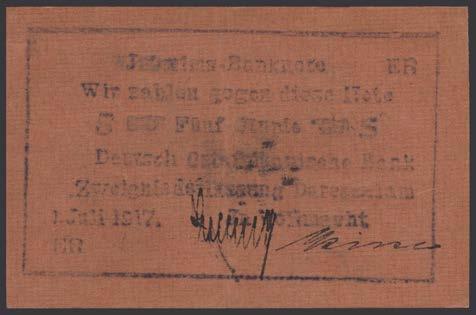 Interims-Banknote. ER
Wir zahlen gegen diese Note
5 Fünf Rupie 5
Deutsch Ostafrikanische Bank
Zweigniederlassung Daressalam
1. Juli 1917. In Vollmacht
ER